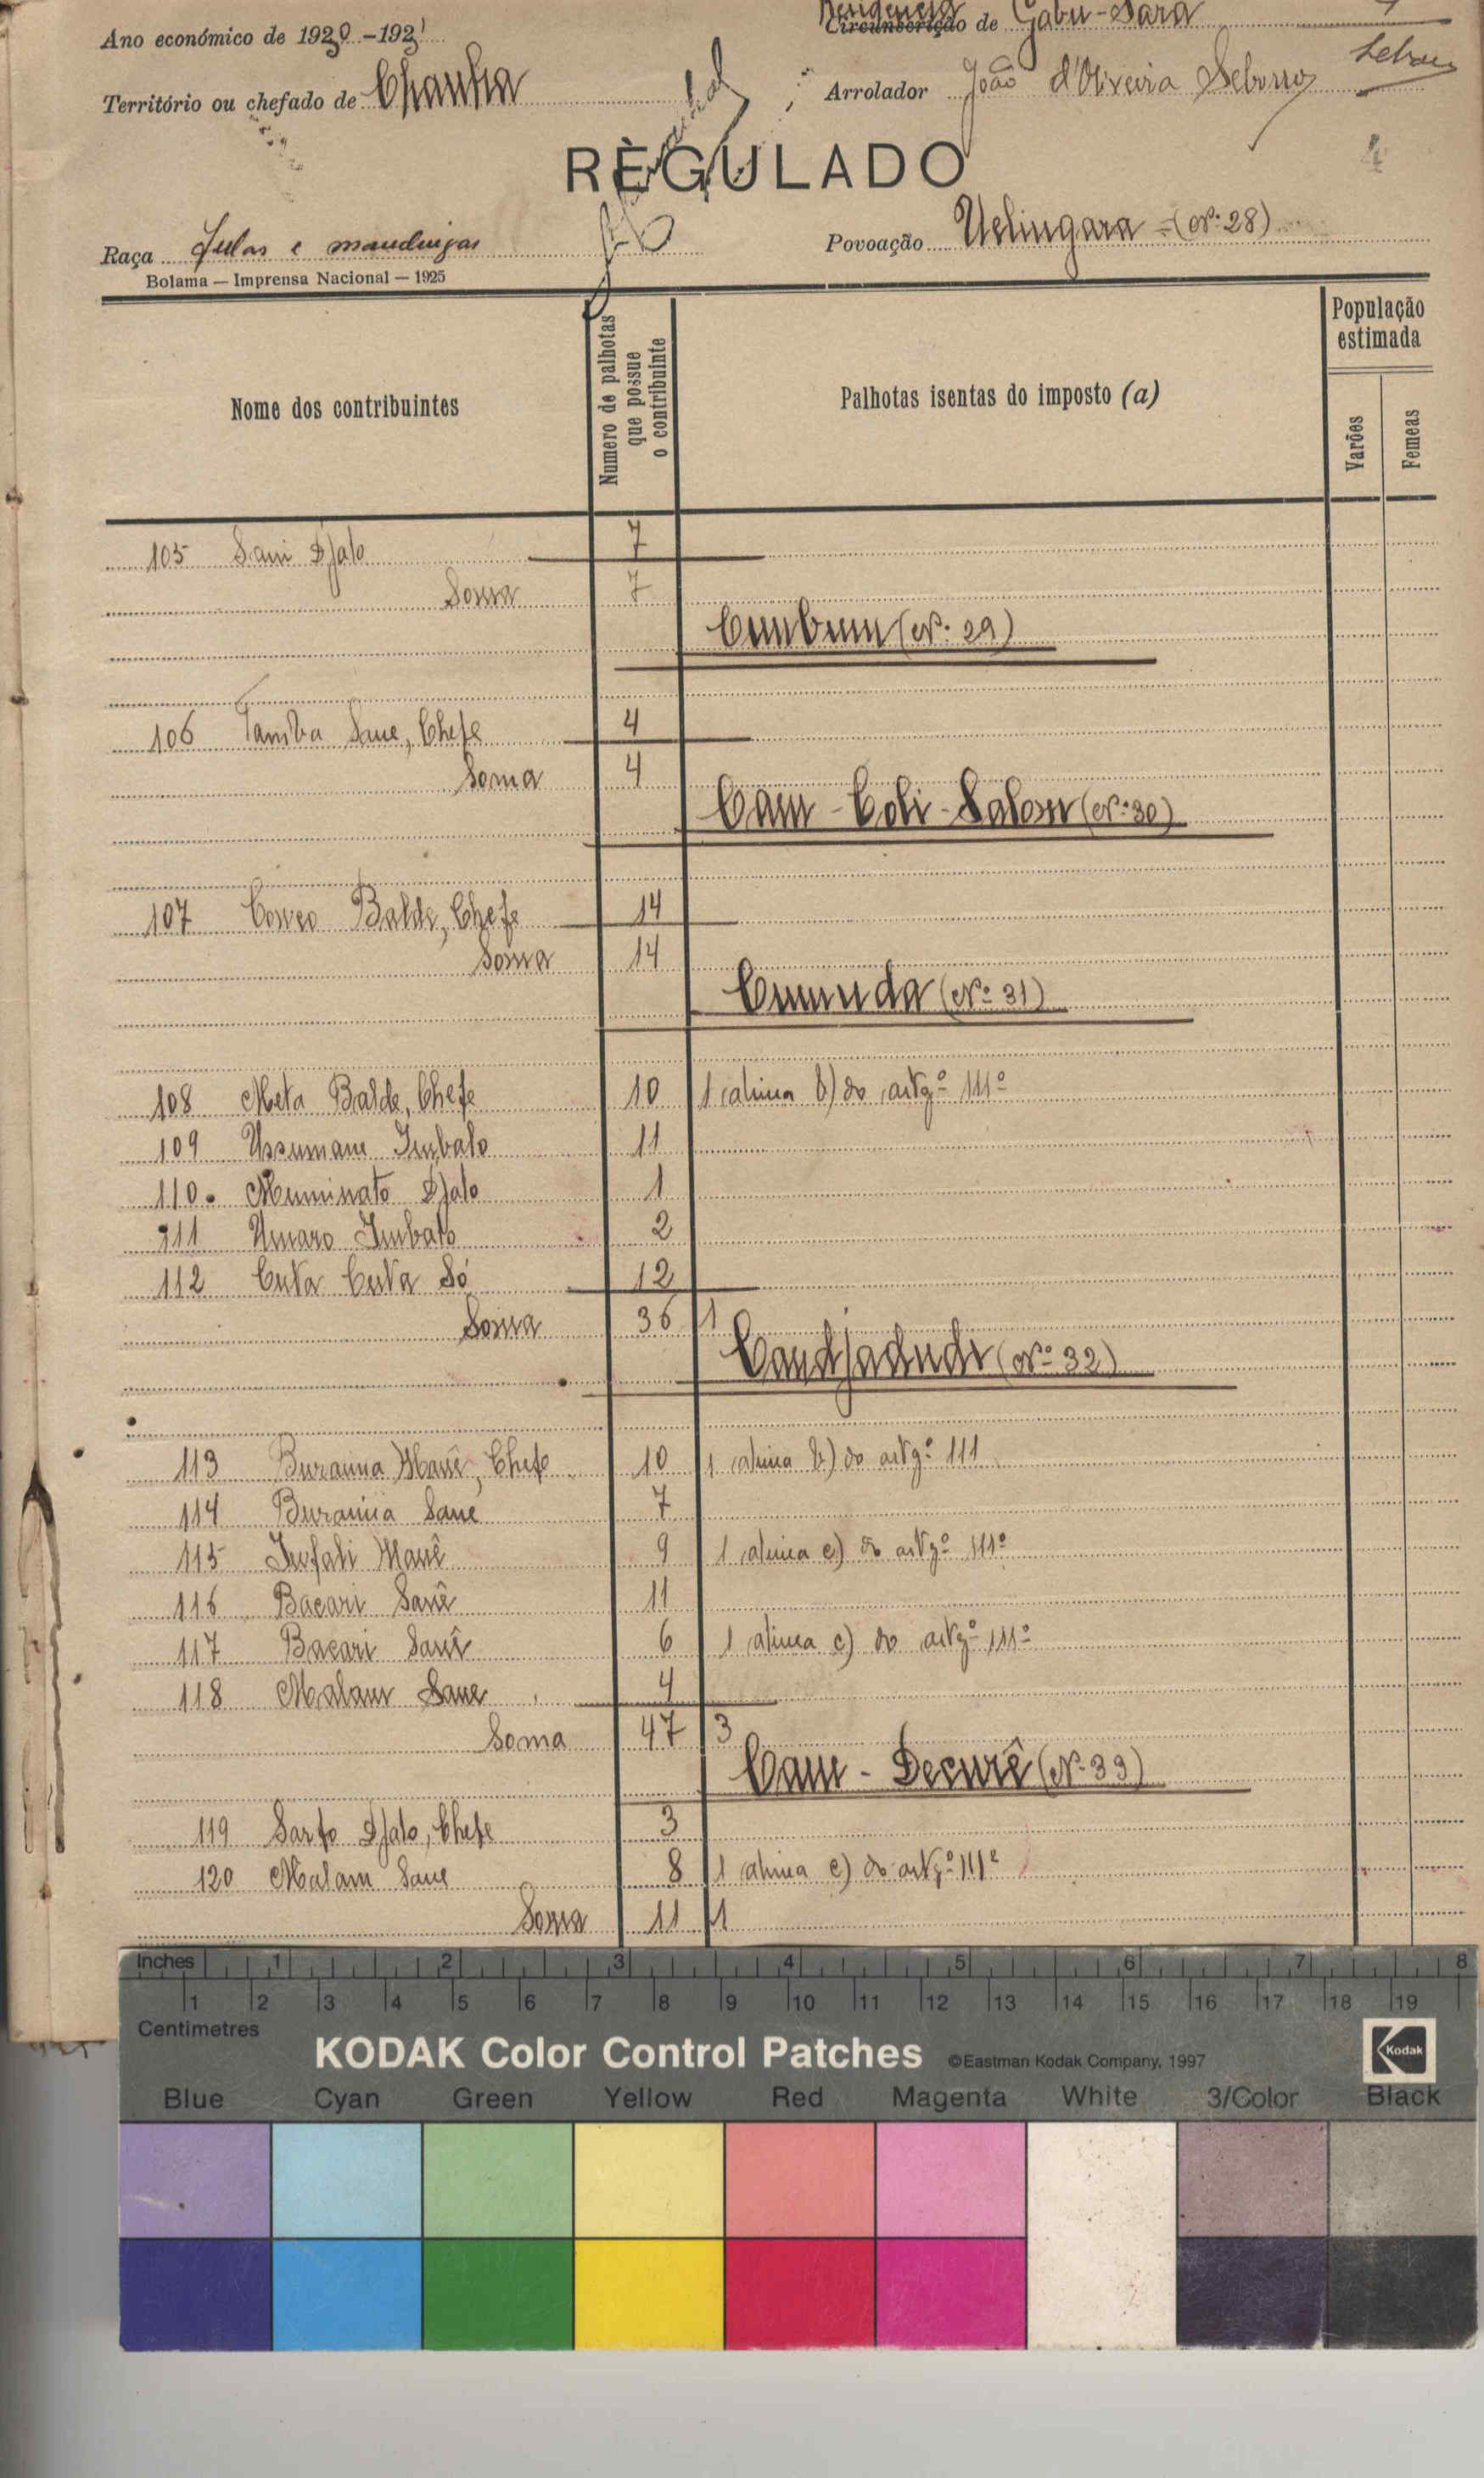 Ano económico de 1930-1931
Residencia
Circunscrição de Gabu-Sara
Território ou chefado de Chanha
Arrolador João d'Oliveira
REGULADO
Raça Fulas e mandingas
Povoação Uelingara - (Nº 28)
Bolama — Imprensa Nacional — 1925
Nome dos contribuintes
Numero de palhotas que possue o contribuinte
Palhotas isentas do imposto (a)
População estimada
Varões
Femeas
105 Sani Djalo 7
Soma 7
Cumbum (Nº 29)
106 Tamba Sane, Chefe 4
Soma 4
Cam-Coli-Salom (Nº 30)
107 Balde, Chefe 14
Soma 14
Cumuda (Nº 31)
108 Meta Balde, Chefe 10 1 alinea b) do artgº 111º
109 Ussumane Imbalo 11
110 Muminato Djalo 1
111 Umaro Imbalo 2
112 Cuta Cuta Só 12
Soma 36 1
Candjadude (Nº 32)
113 Burama Mané, Chefe 10 1 alinea b) do artgº 111
114 Burama Sané 7
115 Infali Manê 9 1 alinea c) do artgº 111º
116 Bacari Sanê 11
117 Bacari Sanê 6 1 alinea c) do artgº 111º
118 Malam Sane 4
Soma 47 3
Cam-Decurê (Nº 33)
119 Sarfo Djalo, Chefe 3
120 Malam Sane 8 1 alinea c) do artgº 111º
Soma 11 1
Inches 1 2 3 4 5 6 7 8
1 2 3 4 5 6 7 8 9 10 11 12 13 14 15 16 17 18 19
Centimetres
KODAK Color Control Patches ©Eastman Kodak Company, 1997 Kodak
Blue Cyan Green Yellow Red Magenta White 3/Color Black